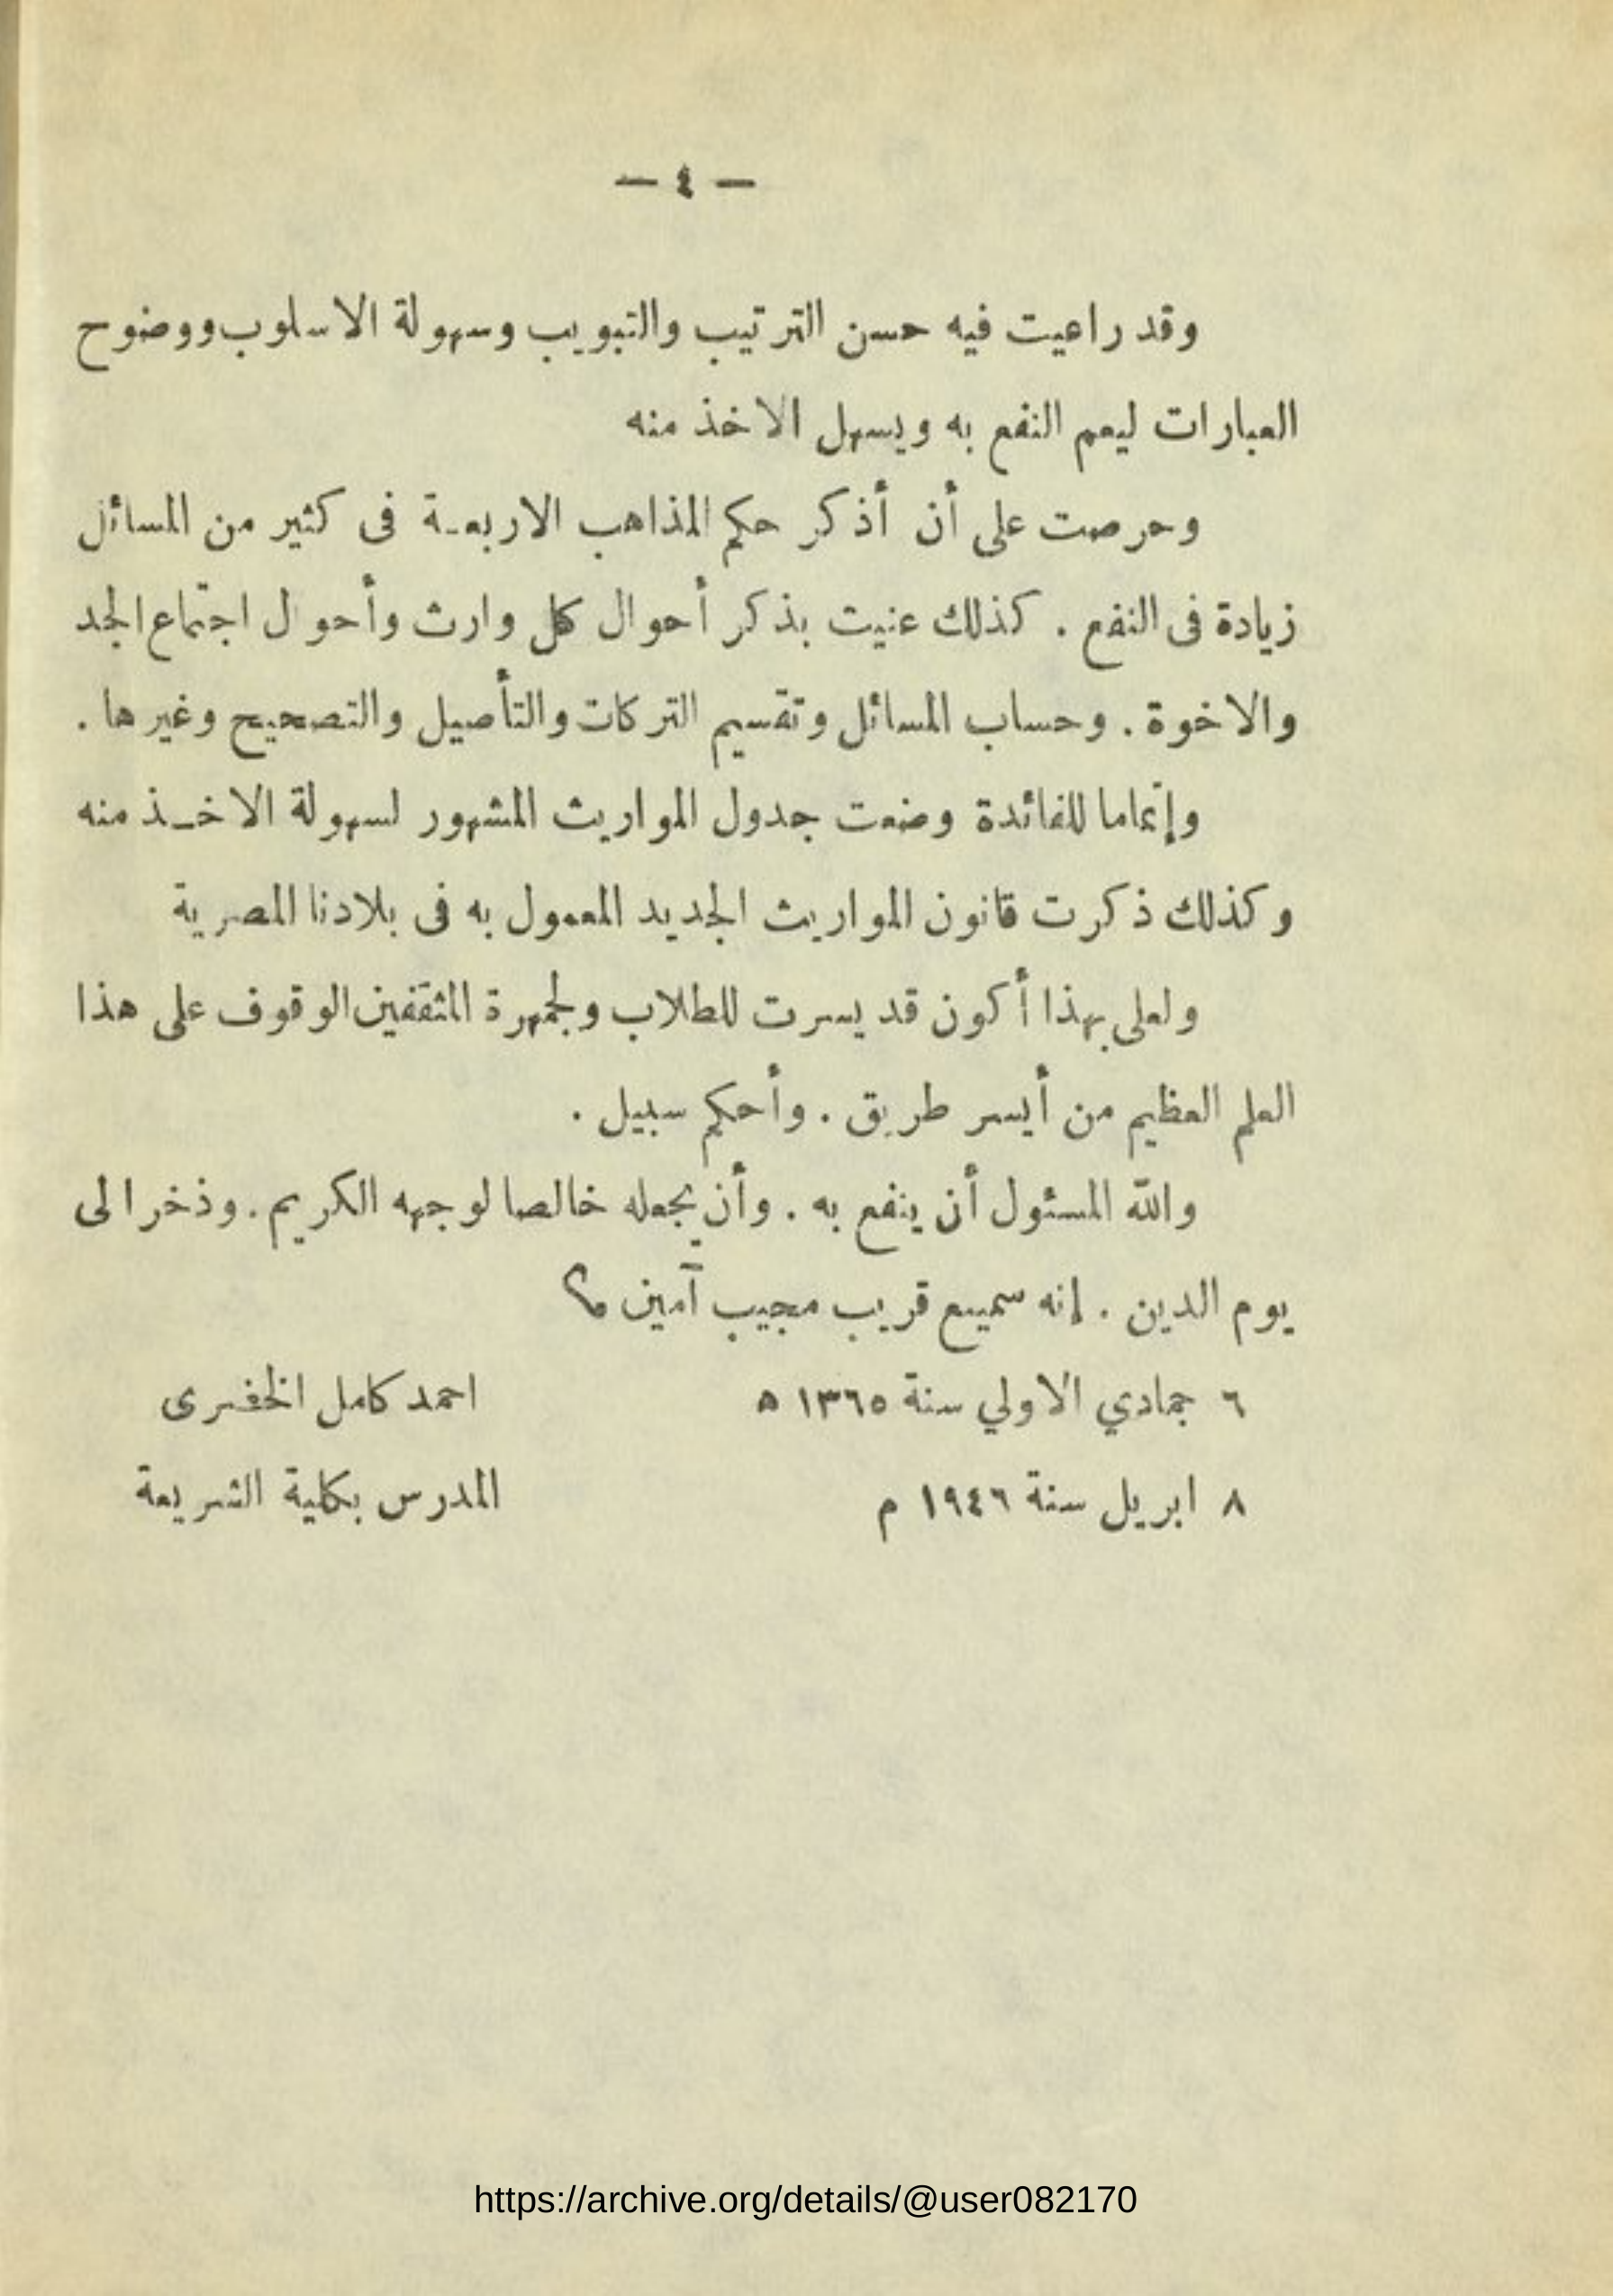 — ٤ —
وقد راعيت فيه حسن الترتيب والتبويب وسهولة الاسلوب ووضوح
العبارات ليعم النفع به ويسهل الاخذ منه
وحرصت على أن أذكر حكم المذاهب الاربعـة فى كثير من المسائل
زيادة فى النفع . كذلك عنيت بذكر أحوال كل وارث وأحوال اجتماع الجد
والاخوة . وحساب المسائل وتقسيم التركات والتأصيل والتصحيح وغيرها .
وإتماما للفائدة وضعت جدول المواريث المشهور لسهولة الاخـذ منه
وكذلك ذكرت قانون المواريث الجديد المعمول به فى بلادنا المصرية
ولعلى بهذا أكون قد يسرت للطلاب ولجمهرة المثقفين الوقوف على هذا
العلم العظيم من أيسر طريق . وأحكم سبيل .
والله المسئول أن ينفع به . وأن يجعله خالصا لوجهه الكريم . وذخرا لى
يوم الدين . إنه سميع قريب مجيب آمين
٦ جمادي الاولي سنة ١٣٦٥ ه احمد كامل الخضرى
٨ ابريل سنة ١٩٤٦ م المدرس بكلية الشريعة
https://archive.org/details/@user082170